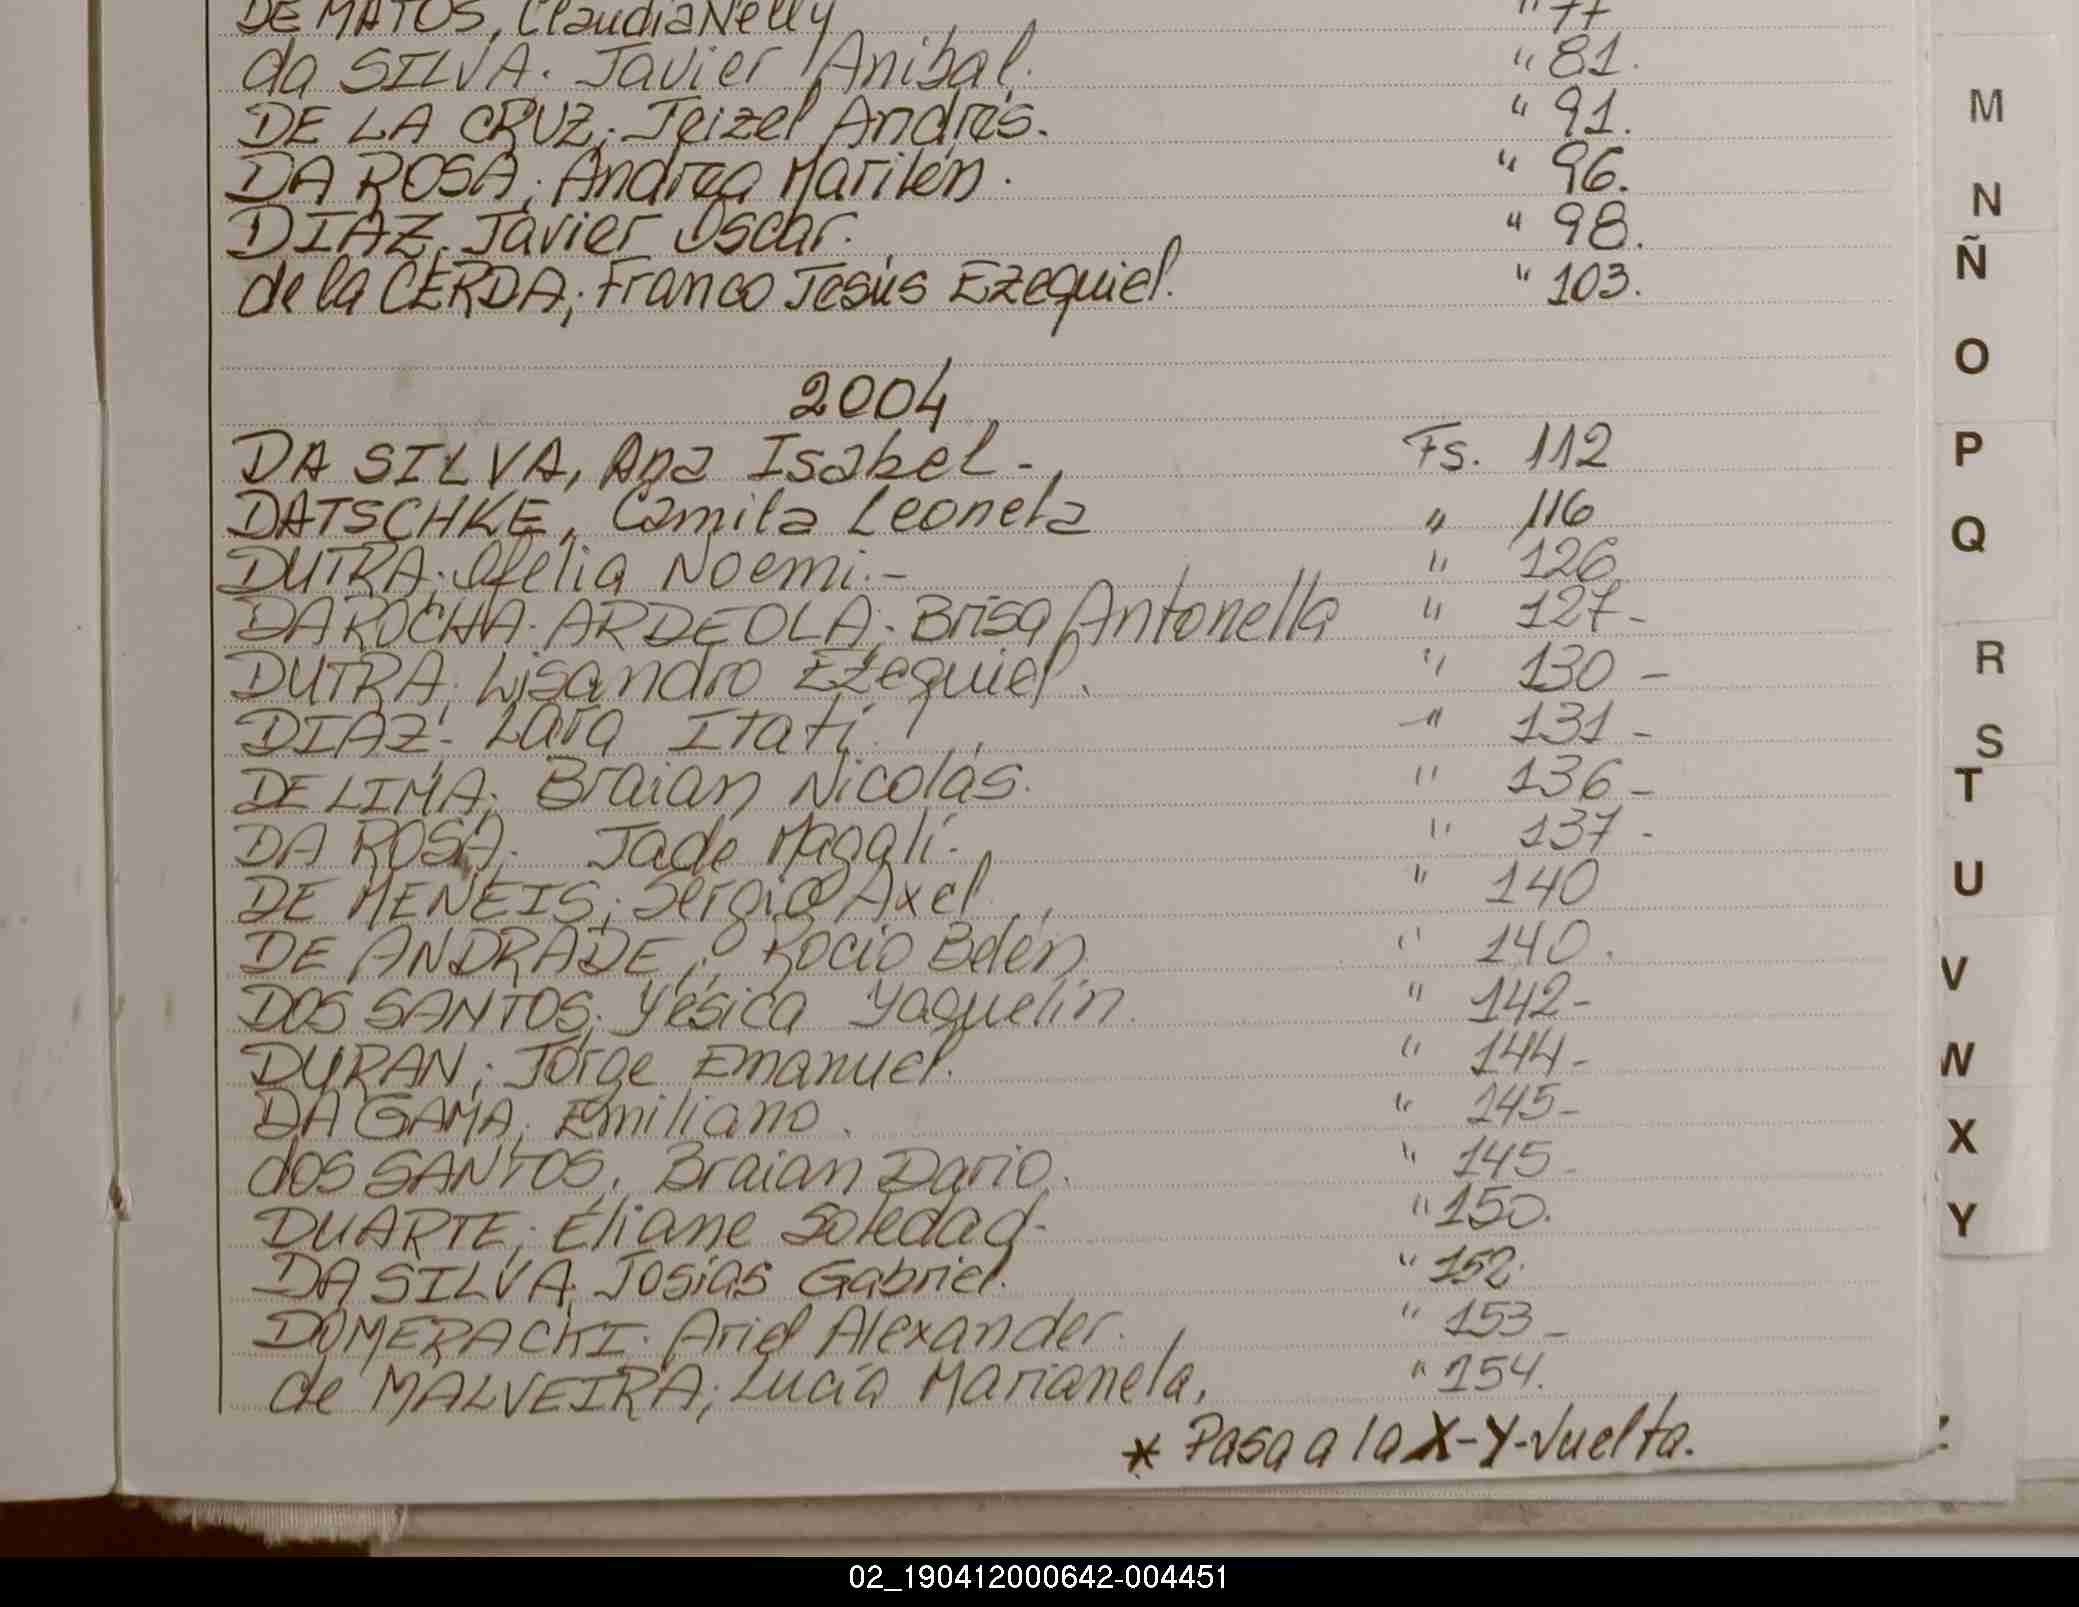 DE MATOS, Claudia Nelly " 77
da SILVA. Javier Anibal. " 81.
DE LA CRUZ; Jeizel Andrés. " 91.
DA ROSA; Andrea Marilén. " 96.
DIAZ, Javier Oscar. " 98.
de la CERDA; Franco Jesús Ezequiel. " 103.
2004
DA SILVA, Ana Isabel - Fs. 112
DATSCHKE, Camila Leonela " 116
DUTRA; Ofelia Noemi.- " 126.
DA ROCHA. ARDEOLA; Brisa Antonella " 127-
DUTRA; Lisandro Ezequiel. " 130 -
DIAZ; Lara Itatí. -" 131 -
DE LIMA; Braian Nicolás. " 136 -
DA ROSA. Jade Magalí. " 137 -
DE MENEIS; Sergio Axel " 140
DE ANDRADE; Rocío Belén " 140.
DOS SANTOS; Yésica Yaquelín. " 142-
DURAN; Jorge Emanuel. " 144-
DA GAMA; Emiliano. " 145-
dos SANTOS, Braian Dario. " 145-
DUARTE; Eliane Soledad- " 150.
DA SILVA; Josías Gabriel. " 152.
DOMERACKI. Ariel Alexander. " 153 -
de MALVEIRA; Lucía Marianela, " 154.
* Pasa a la X-Y-Vuelta.
M
N
Ñ
O
P
Q
R
S
T
U
V
W
X
Y
02_190412000642-004451